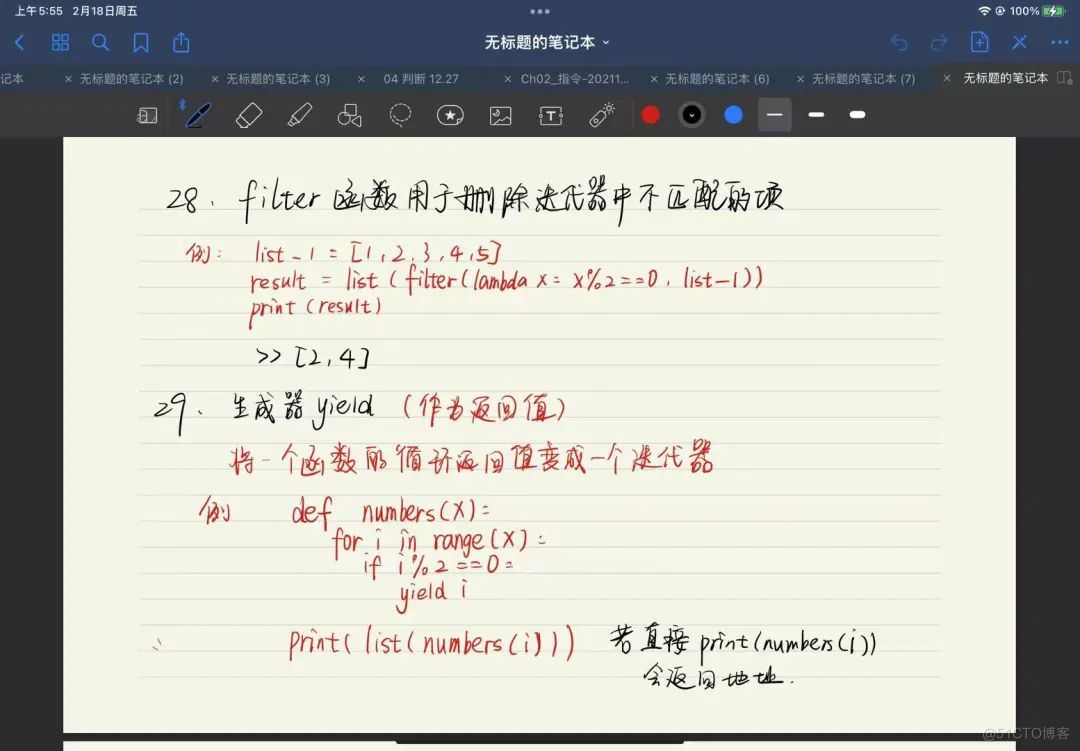 上午5:55 2月18日周五
100%
无标题的笔记本
记本 × 无标题的笔记本 (2) × 无标题的笔记本 (3) × 04 判断 12.27 × Ch02_指令-20211... × 无标题的笔记本 (6) × 无标题的笔记本 (7) × 无标题的笔记本
28. filter函数用于删除迭代器中不匹配的项
例: list-1 = [1,2,3,4,5]
result = list(filter(lambda x= x%2==0, list-1))
print(result)
>> [2,4]
29. 生成器yield (作为返回值)
将一个函数的循环返回值变成一个迭代器
例 def numbers(x):
for i in range(x):
if i%2==0:
yield i
print(list(numbers(i))) 若直接print(numbers(i))
会返回地址.
@51CTO博客